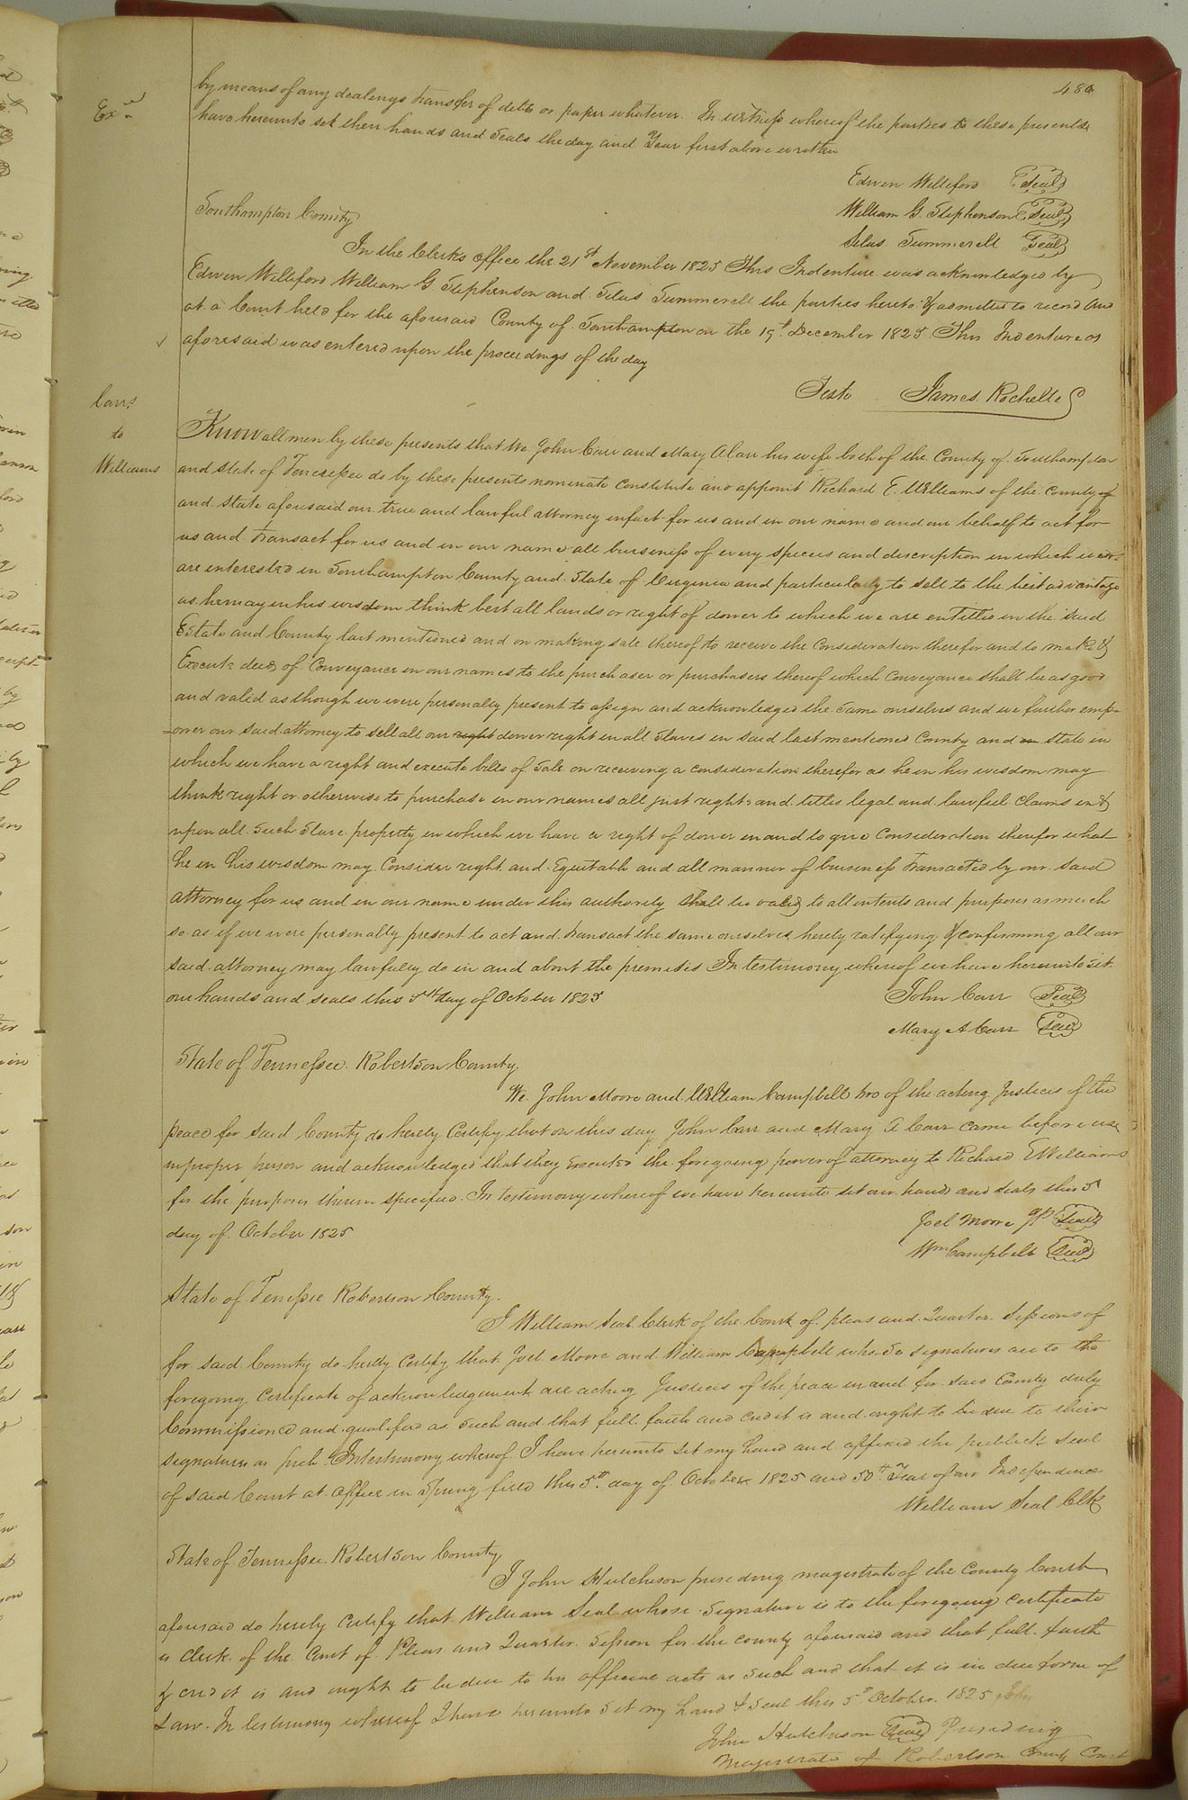 484
Ex.d
by means of any dealings transfer of debts or paper whatever. In witness whereof the parties to these presents
have hereunto set their hands and Seals the day and Year first above written
Edwin Williford Seal
William G. Stephenson Seal
Silas Summerell Seal
Southampton County
In the Clerks office the 21st November 1825 This Indenture was acknowledged by
Edwin Williford William G Stephenson and Silas Summerell the parties hereto & admitted to record And
at a Court held for the aforesaid County of Southampton on the 19th December 1825 This Indenture as
aforesaid was entered upon the proceedings of the day
Teste James Rochelle
Carr
to
Williams
Know all men by these presents that We John Carr and Mary A Carr his wife both of the County of Southampton
and state of Tennessee do by these presents nominate constitute and appoint Richard E. Williams of the County of
and state aforesaid our true and lawful attorney in fact for us and in our name and our behalf to act for
us and transact for us and in our name all business of every species and description in which we
are interested in Southampton County and State of Virginia and particularly to sell to the best advantage
as he may in his wisdom think best all lands or right of dower to which we are entitled in the said
Estate and County last mentioned and on making sale thereof to receive the consideration therefor and to make &
Execute deed of Conveyance in our names to the purchaser or purchasers thereof which Conveyance shall be as good
and valid as though we were personally present to assign and acknowledged the same ourselves and we further emp-
-ower our said attorney to sell all our right dower right in all Slaves in said last mentioned County and state in
which we have a right and execute bills of Sale on receiving a consideration therefor as he in his wisdom may
think right or otherwise to purchase in our names all just rights and titles legal and lawful claims in &
upon all such Slave property in which we have a right of dower in and to give Consideration therefor what
he in his wisdom may Consider right and Equitable and all manner of business transacted by our said
attorney for us and in our name under this authority shall be valid to all intents and purposes as much
so as if we were personally present to act and transact the same ourselves hereby ratifying & confirming all our
said attorney may lawfully do in and about the premises In testimony whereof we have hereunto set
our hands and seals this 5th day of October 1825
John Carr Seal
Mary A Carr Seal
State of Tennessee Robertson County
We John Moore and William Campbell two of the acting Justices of the
peace for said County do hereby Certify that on this day John Carr and Mary A Carr came before us
in proper person and acknowledged that they Executed the foregoing power of attorney to Richard E Williams
for the purposes therein specified. In testimony whereof we have hereunto set our hands and seals this 5
day of October 1825
Joel Moore JP Seal
Wm Campbell Seal
State of Tennessee Robertson County.
I William Seal Clerk of the Court of pleas and Quarter Sessions of
for said County do hereby Certify that Joel Moore and William Campbell whose signatures are to the
foregoing Certificate of acknowledgement are acting Justices of the peace in and for said County duly
Commissioned and qualified as such and that full faith and credit is and ought to be due to their
signatures as such. In testimony whereof I have hereunto set my hand and affixed the publick seal
of said Court at office in Spring field this 5th day of October 1825 and 50th Year of our Independence
William Seal Clk
State of Tennessee Robertson County
I John Hutchison presiding magistrate of the County Court
aforesaid do hereby Certify that William Seal whose signature is to the foregoing Certificate
is Clerk of the Court of Pleas and Quarter Session for the county aforesaid and that full faith
& credit is and ought to be due to his official acts as such and that it is in due form of
Law. In testimony whereof I have hereunto set my hand & Seal this 5th October 1825 John
John Hutchison Seal Presiding
magistrate of Robertson County Court